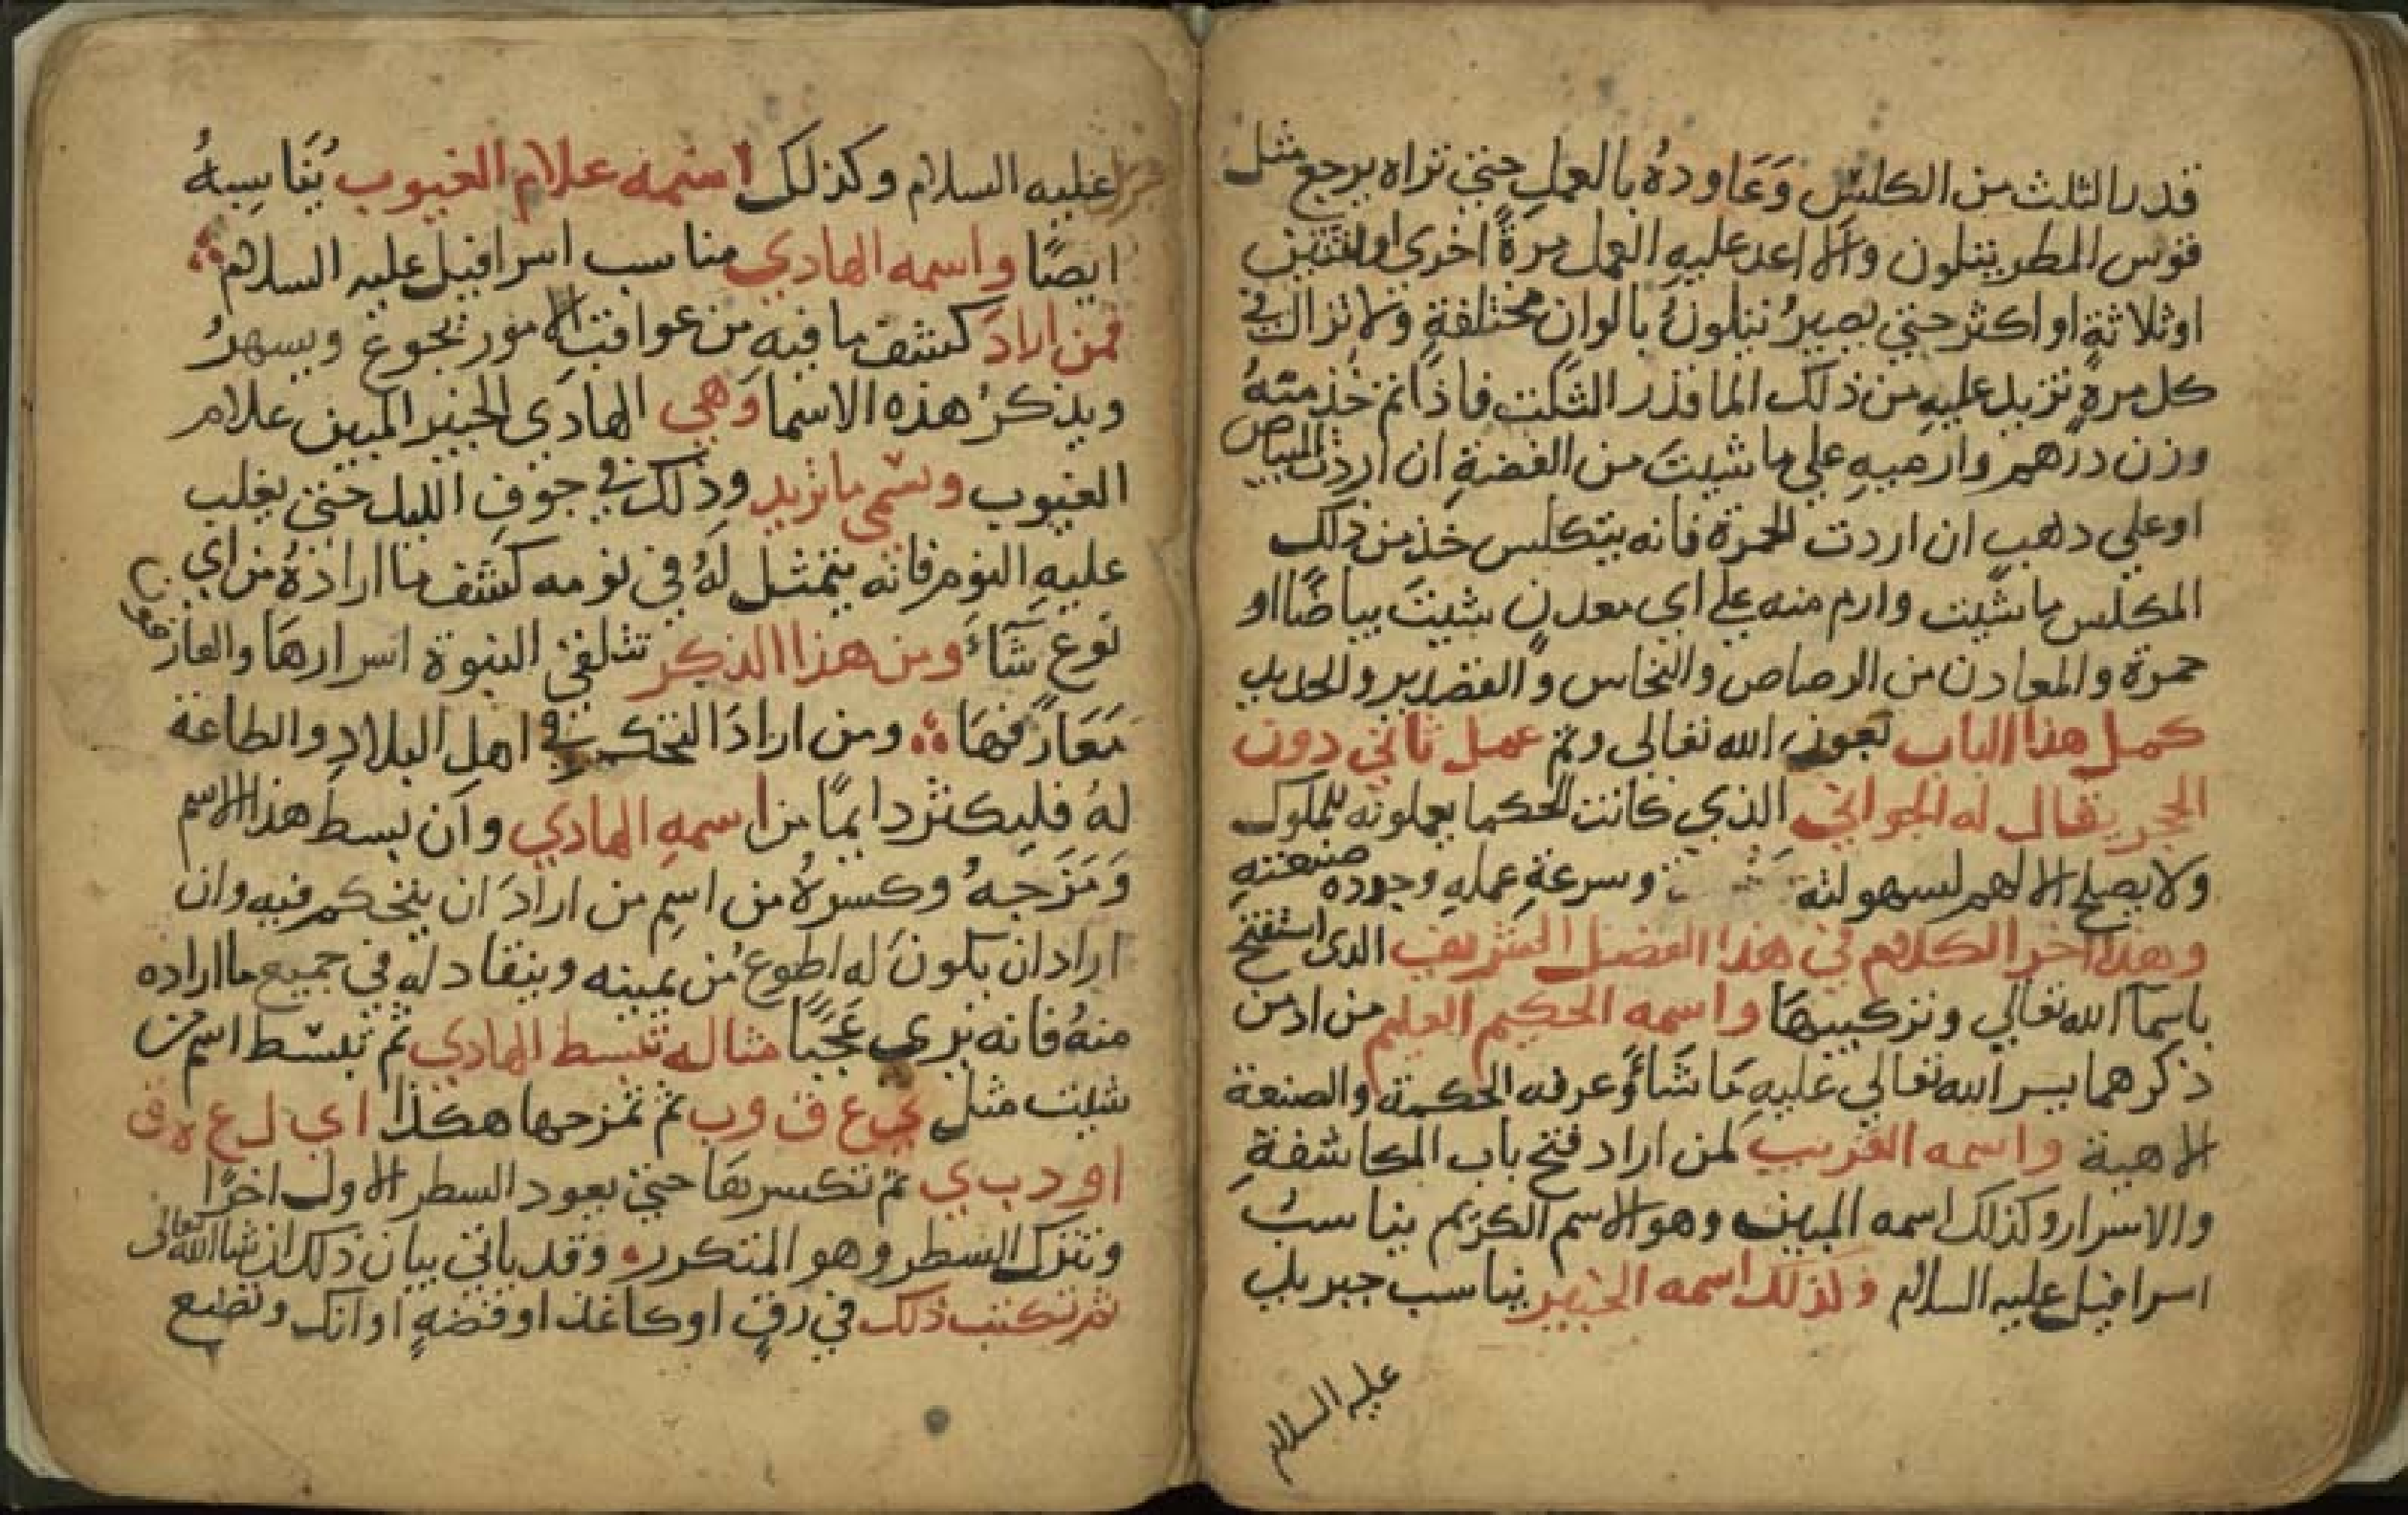 قدر الثلث من الكلس وَعَاودهُ بالعملِ حتي تراه يرجع مثل
قوس المطر يتلون والا اعد عليهِ العمل مرةً اخري او اثنتين
او ثلاثةٍ او اكثر حتي يصيرُ يتلونُ بالوانٍ مختلفةٍ ولا تزال في
كل مرةٍ تزيد عليهِ من ذلك الما قدر الثلث فاذا تم خذ منهُ
وزن درهم وارميهِ علي ما شيتَ من الفضةِ ان اردت البياض
او علي دهبٍ ان اردت الحمرة فانه يتكلس خذ من ذلك
المكلس ما شيت وارم منه علي اي معدنٍ شيتَ بياضًا او
حمرة والمعادن من الرصاص والنحاس والقضدير والحديد
كمل هذا الباب بعون الله تعالى وتم عمل ثاني دون
الحجر يقال له الجواني الذي كانت الحكما يعملونه للملوك
ولا يصلح الا لهم لسهولته وسرعةِ عملهِ وجوده صنعتهِ
وهذا اخر الكلام في هذا الفصل الشريف الذى استفتح
باسمآ الله تعالي وتركيبهَا واسمه الحكيم العليم من ادمن
ذكرهما يسر الله تعالي عليهِ مَا شَاءَ وعرفه الحكمة والصنعة
الاهية واسمه القريب لمن اراد فتح باب المكاشفةِ
والاسرار وكذلك اسمه المبين وهو الاسم الكريم يناسبُ
اسرافيل عليه السلام وكذلك اسمه الخبير يناسب جبريل
عليه السلام
عليه السلام وكذلك اسمه علام الغيوب يُنَاسِبهُ
ايضًا واسمه الهادي مناسب اسرافيل عليه السلام
فمن ارادَ كشف ما فيهِ من عواقب الامور يجوع ويسهرُ
ويذكرُ هذه الاسما وَهي الهادي الخبير المبين علام
الغيوب وتسمي ما تريد وذلك في جوفِ الليل حتي يغلب
عليهِ النوم فانه يتمثل لهُ في نومه كشف ما ارادهُ من اي
نوع شَآءَ ومن هذا الذكر تتلقي النبوة اسرارهَا والعارفون
مَعَارفهَا ومن ارادَ التحكم في اهلِ البلادِ والطاعة
لهُ فليكثر دايمًا من اسمهِ الهادي وان بسط هذا الاسم
وَمَزَجهُ وكسرهُ من اسمِ من ارادَ ان يتحكم فيهِ وان
اراد ان يكونَ له اطوع من يمينه وينقاد له في جميع ما اراده
منهُ فانه يري عَجَبًا مثاله تبسط الهادي ثم تبسط اسم من
شيت مثل ي ع ق و ب ثم تمزجها هكذا ا ي ل ع ه ق
ا و د ب ي ثم تكسرهَا حتي يعود السطر الاول اخرًا
وتترك السطر وهو المتكرر وقد ياتي بيان ذلك ان شا الله تعالى
ثم تكتب ذلك في رقٍ او كاغد او فضةٍ او انك وتضيع